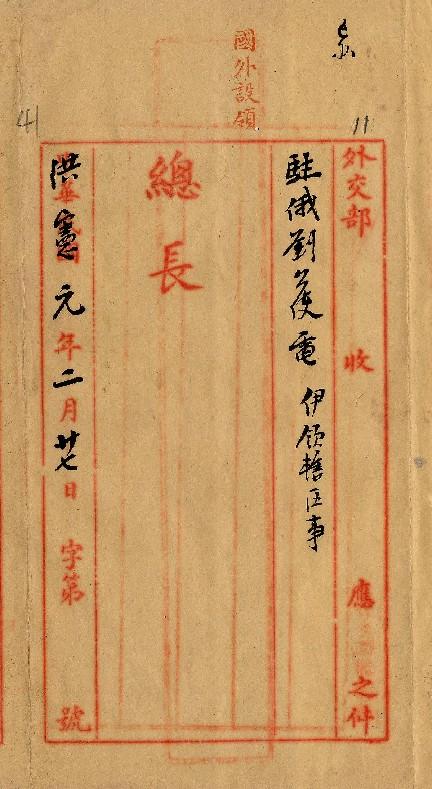 國外設領
11
外交部 收 應 之件
駐俄劉公使電 伊領轄區事
總長
洪憲元年二月廿七日 字第 號
41